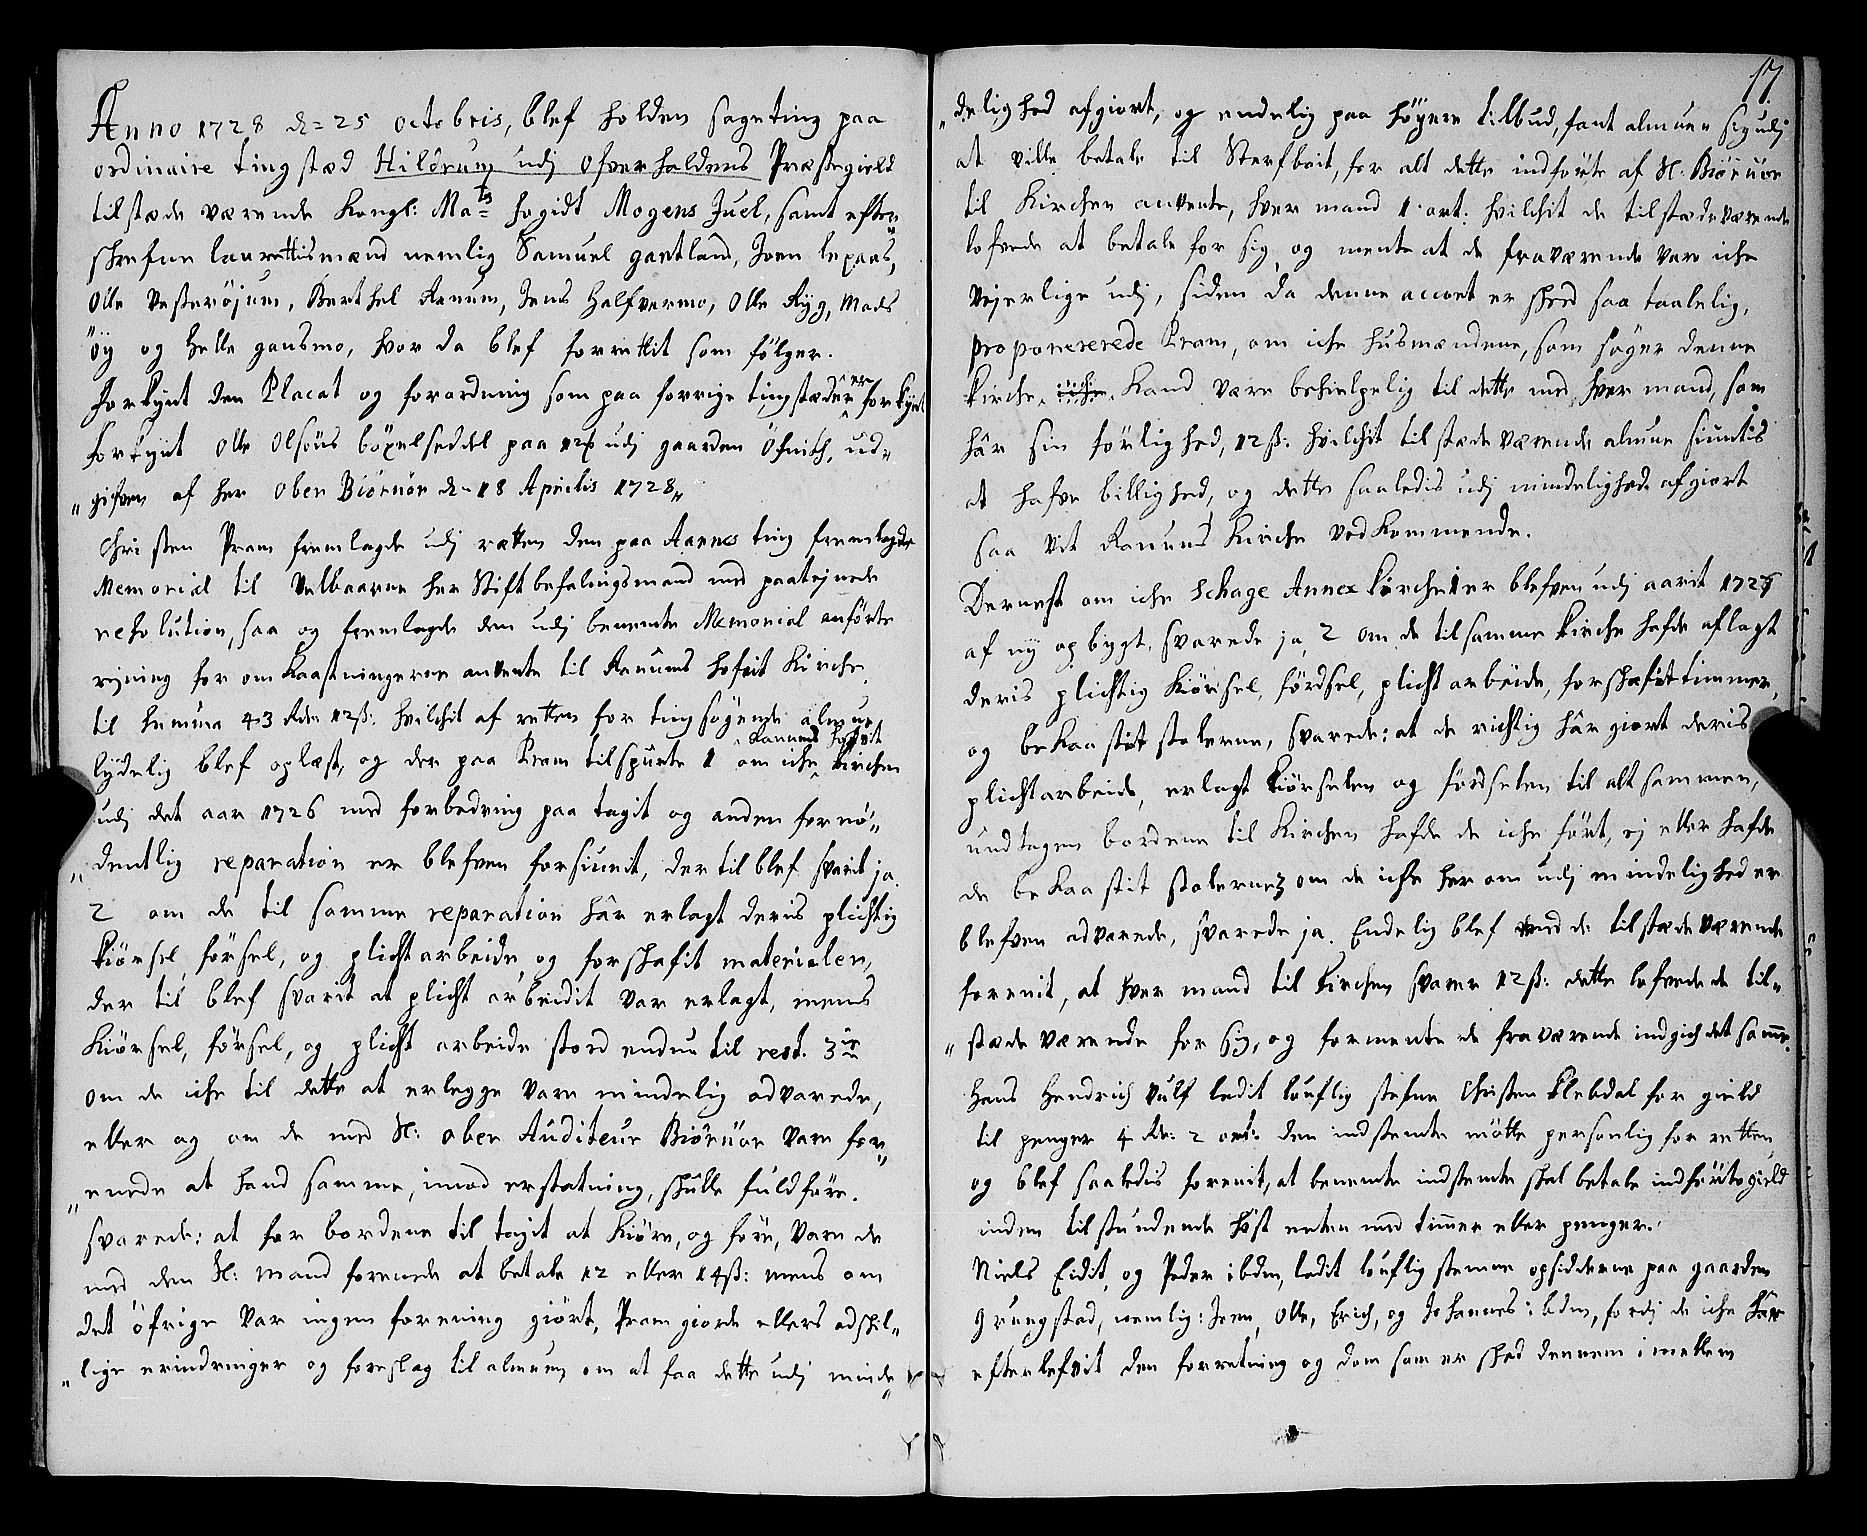 Anno 1728 d= 25 octobris, blef holden sageting paa
ordinaire tingstæd Hildrum udj Ofverhaldens Præstegield
tilstæde værende Kongl: Ma:ts fogidt Mogens Juel, samt efter
skrefne laurettismænd nemlig Samuel gartland, Joen lepaas,
Olle Vesterøjum, Berthel Ranum, Jens Halfvermo, Olle Ryg, Mads
öÿ og Helle gansmo, hvor da blef forrettit som fölger.
forkynt den Placat og forordning som paa forrige tingstæder er forkÿnt
forkynt Olle Olsöns böxelseddel paa udj gaarden Öfnith, ud-
„ gifven af her Ober Biörnör d= 18 Aprilis 1728„
Christen Pram fremlagde udj retten den paa Aarnes ting fremlagde
Memorial til Velbaarne her Stiftbefalingsmand med paategnede
resolution, saa og fremlagde den udj benente Memorial anförte
regning for omkaastningerne anvente til Ranums hofvit Kirche,
til summa 43 Rdr 12ß: hvilchit af retten for tingsögende almue
lÿdelig blef oplæst, og der paa Pram tilspurte 1 om iche Ranums hofvit Kirchen
udj det aar 1726 med forbedring paa tagit og anden fornö-
„ dentlig reparation er blefven forsiunit, der til blef svarit ja.
2 om de til samme reparation hâr erlagt deris plichtig
kiörsel, försel, og plichtarbeide og forskafit materialen,
der til blef svarit at plicht arbeidit var erlagt, mens
kiörsel, försel, og plicht arbeide stod endnu til rest. 3ie
om de iche til dette at erlegge vare mindelig advarede,
eller og om de med Hr: ober Auditeur Biörnör vare for„
„ enede at hand samme, imod erstatning, skulle fuldföre.
svarede: at for bordene til tagit at kiöre, og före, vare de
med den Hr: mand forenede at betale 12 eller 14ß: mens om
det öfrige var ingen forening giört, Pram giorde ellers adskil„
„ lige erindringer og foreslag til almuen om at faa dette udj minde„
17.
„ delighed afgiort, og endelig paa höyere tilbud, fant almuen sig udj
at ville betale til Sterfboit, for alt dette indförte af Hr. Biörnör
til Kirchen anvente, hver mand 1 ort: hvilchit de tilstædeværende
lofvede at betale for sig, og mente at de fraværende vare iche
vejerlige udj, siden da denne accort er skeed saa taalelig,
proponererede Pram, om iche husmændene, som söger denne
Kirche, iche Kand være behielpelig til dette med hver mand, som
hâr sin förlighed, 12ß: hvilchit tilstæde værende almue siuntis
at hafve billighed, og dette saaledis udj mindelighed afgiort
saa vit Ranums Kirche vedkommende.
Dernest om iche Schage Annex Kirche 1 er blefven udj aarit 1726
af ny opbygt, svarede ja, 2 om de til samme kirche hafde aflagt
deris plichtig kiörsel, fördsel, plichtarbeide, forskafit timmer,
og bekaastit stolerne, svarede: at de richtig hâr giort deris
plichtarbeide, erlagt kiörselen og fördselen til alt sammen,
undtagen bordene til Kirchen hafde de iche fört, ej eller hafde
de bekaastit stolerne 3 om de iche her om udj mindelighed er
blefven advarede, svarede ja. Endelig blef med de tilstædeværende
forenit, at hver mand til kirchen svarer 12ß: dette lofvede de til„
„ stæde værende for sig, og formente de fraværende indgich det samme.
Hans Hendrich Vulf ladit louflig stefne Christen Klebdal for gield
til penger 4 Rdr: 2 ort: den indstemte mötte personlig for retten
og blef saaledis forenit, at benente indstemte skal betale indförte gield
inden tilstundende höst enten med timmer eller penger.
Niels Eidit, og Peder ibdm, ladit louflig stemne opsidderne paa gaarden
Grungstad, nemlig: Joen, Olle, Erich, og Johannes: ibdm, fordj de iche hâr
efterlefvit den forretning og dom som er skeed dennem imellem